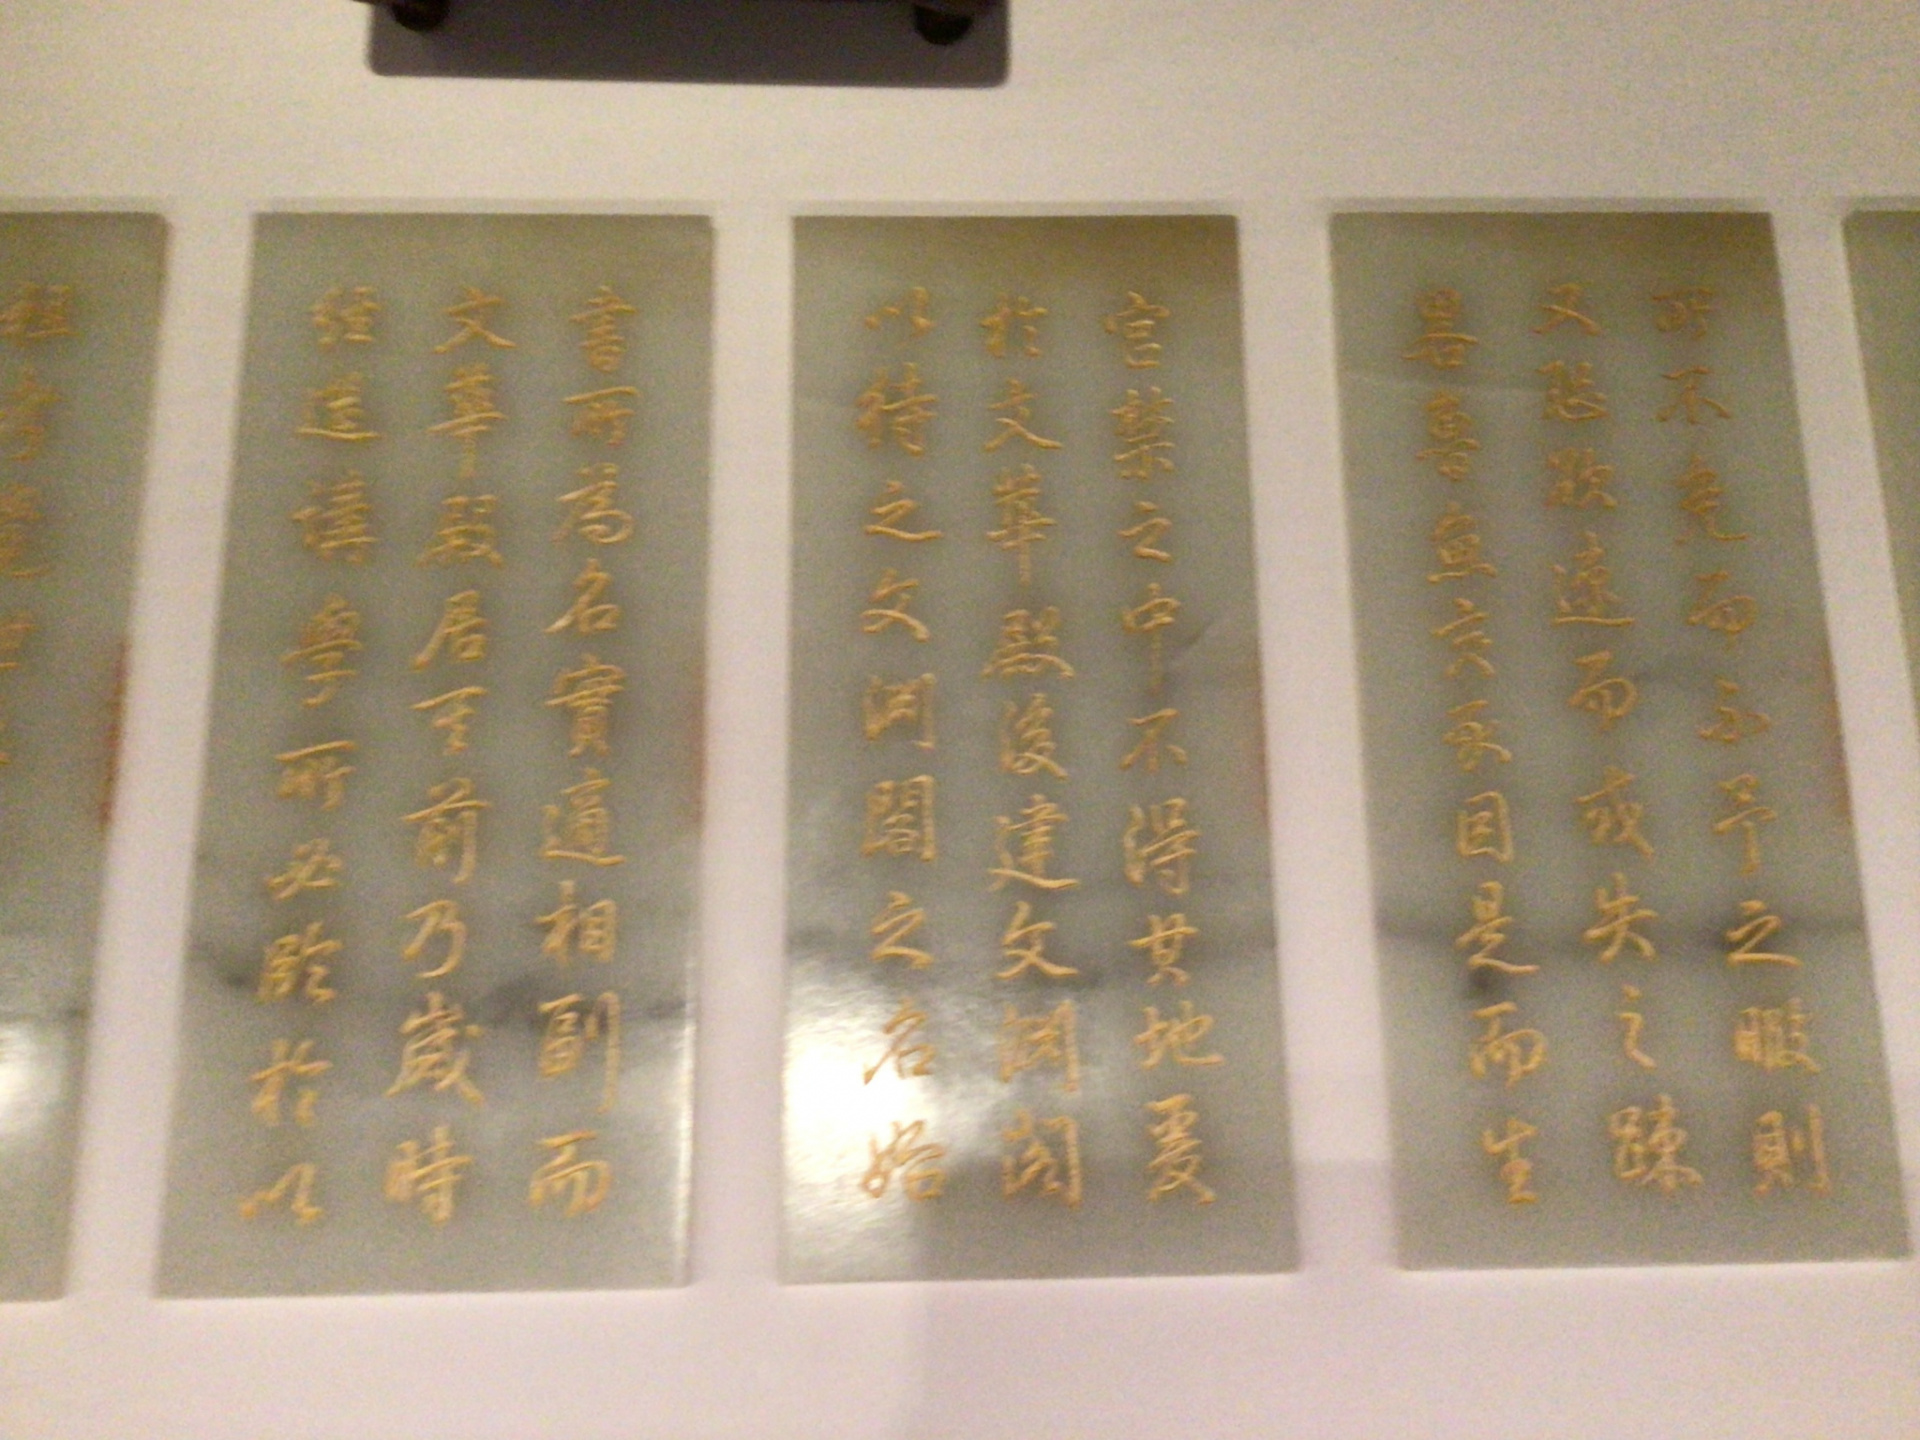 所不免而不予之暇則
又恐欲速而或失之踈
畧魯魚亥豕因是而生
宮禁之中不得其地爰
於文華殿後建文淵閣
以待之文淵閣之名始
書所為名實適相副而
文華殿居其前乃歲時
經筵講學所必臨於以
祖考覺世